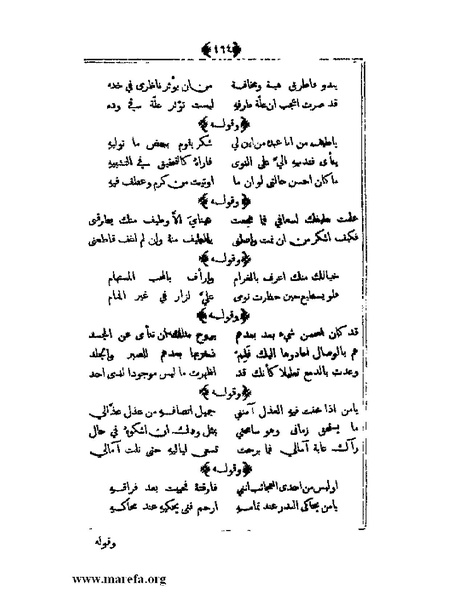 ﴿٤٦٤﴾
يبدو فاطرق هيبة ومخافة من ان يؤثر ناظري في خده
قد صرت اعجب ان علة طرفه ليست تؤثر علة في وده
﴿وقوله﴾
شكر يقوم ببعض ما توليه
على النوى فاراه كالتحقيق في التشبيه
ما كان احسن حالتي لو ان ما اوتيت من كرم وعطف فيه
﴿وقوله﴾
علمت طيفك اسعافي فما هجعت عيناي الا وطيف منك يطرقني
فكيف اشكر من ان نمت واصلني بالطيف منه وان لم اغف قاطعني
﴿وقوله﴾
خيالك منك اعرف بالغرام وارأف بالمحب المستهام
فلو يسطيع حين حظرت نومي علي لزار في غير المنام
﴿وقوله﴾
قد كان لحسن شيء بعد بعدهم بروح ان تنأى عن الجسد
هم بالوصال اليك فلم بعدهم للصبر والجلد
وعدت بالدمع تعليلا كأنك قد اظهرت ما ليس موجودا لدى احد
﴿وقوله﴾
يا من اذا فيه العذل آمنني جميل انصافه من عذل عذالي
ما زماني وهو سامحني بمثل ودك ان اشكوه في حال
رآك غاية آمالي فما برحت تسعى لياليه حتى نلت آمالي
﴿وقوله﴾
اوليس من احدى العجائب انني فارقته فحييت بعد فراقه
يا من يحاكي البدر عند تمامه ارحم فتى يحكيه عند محاقه
وقوله
www.marefa.org